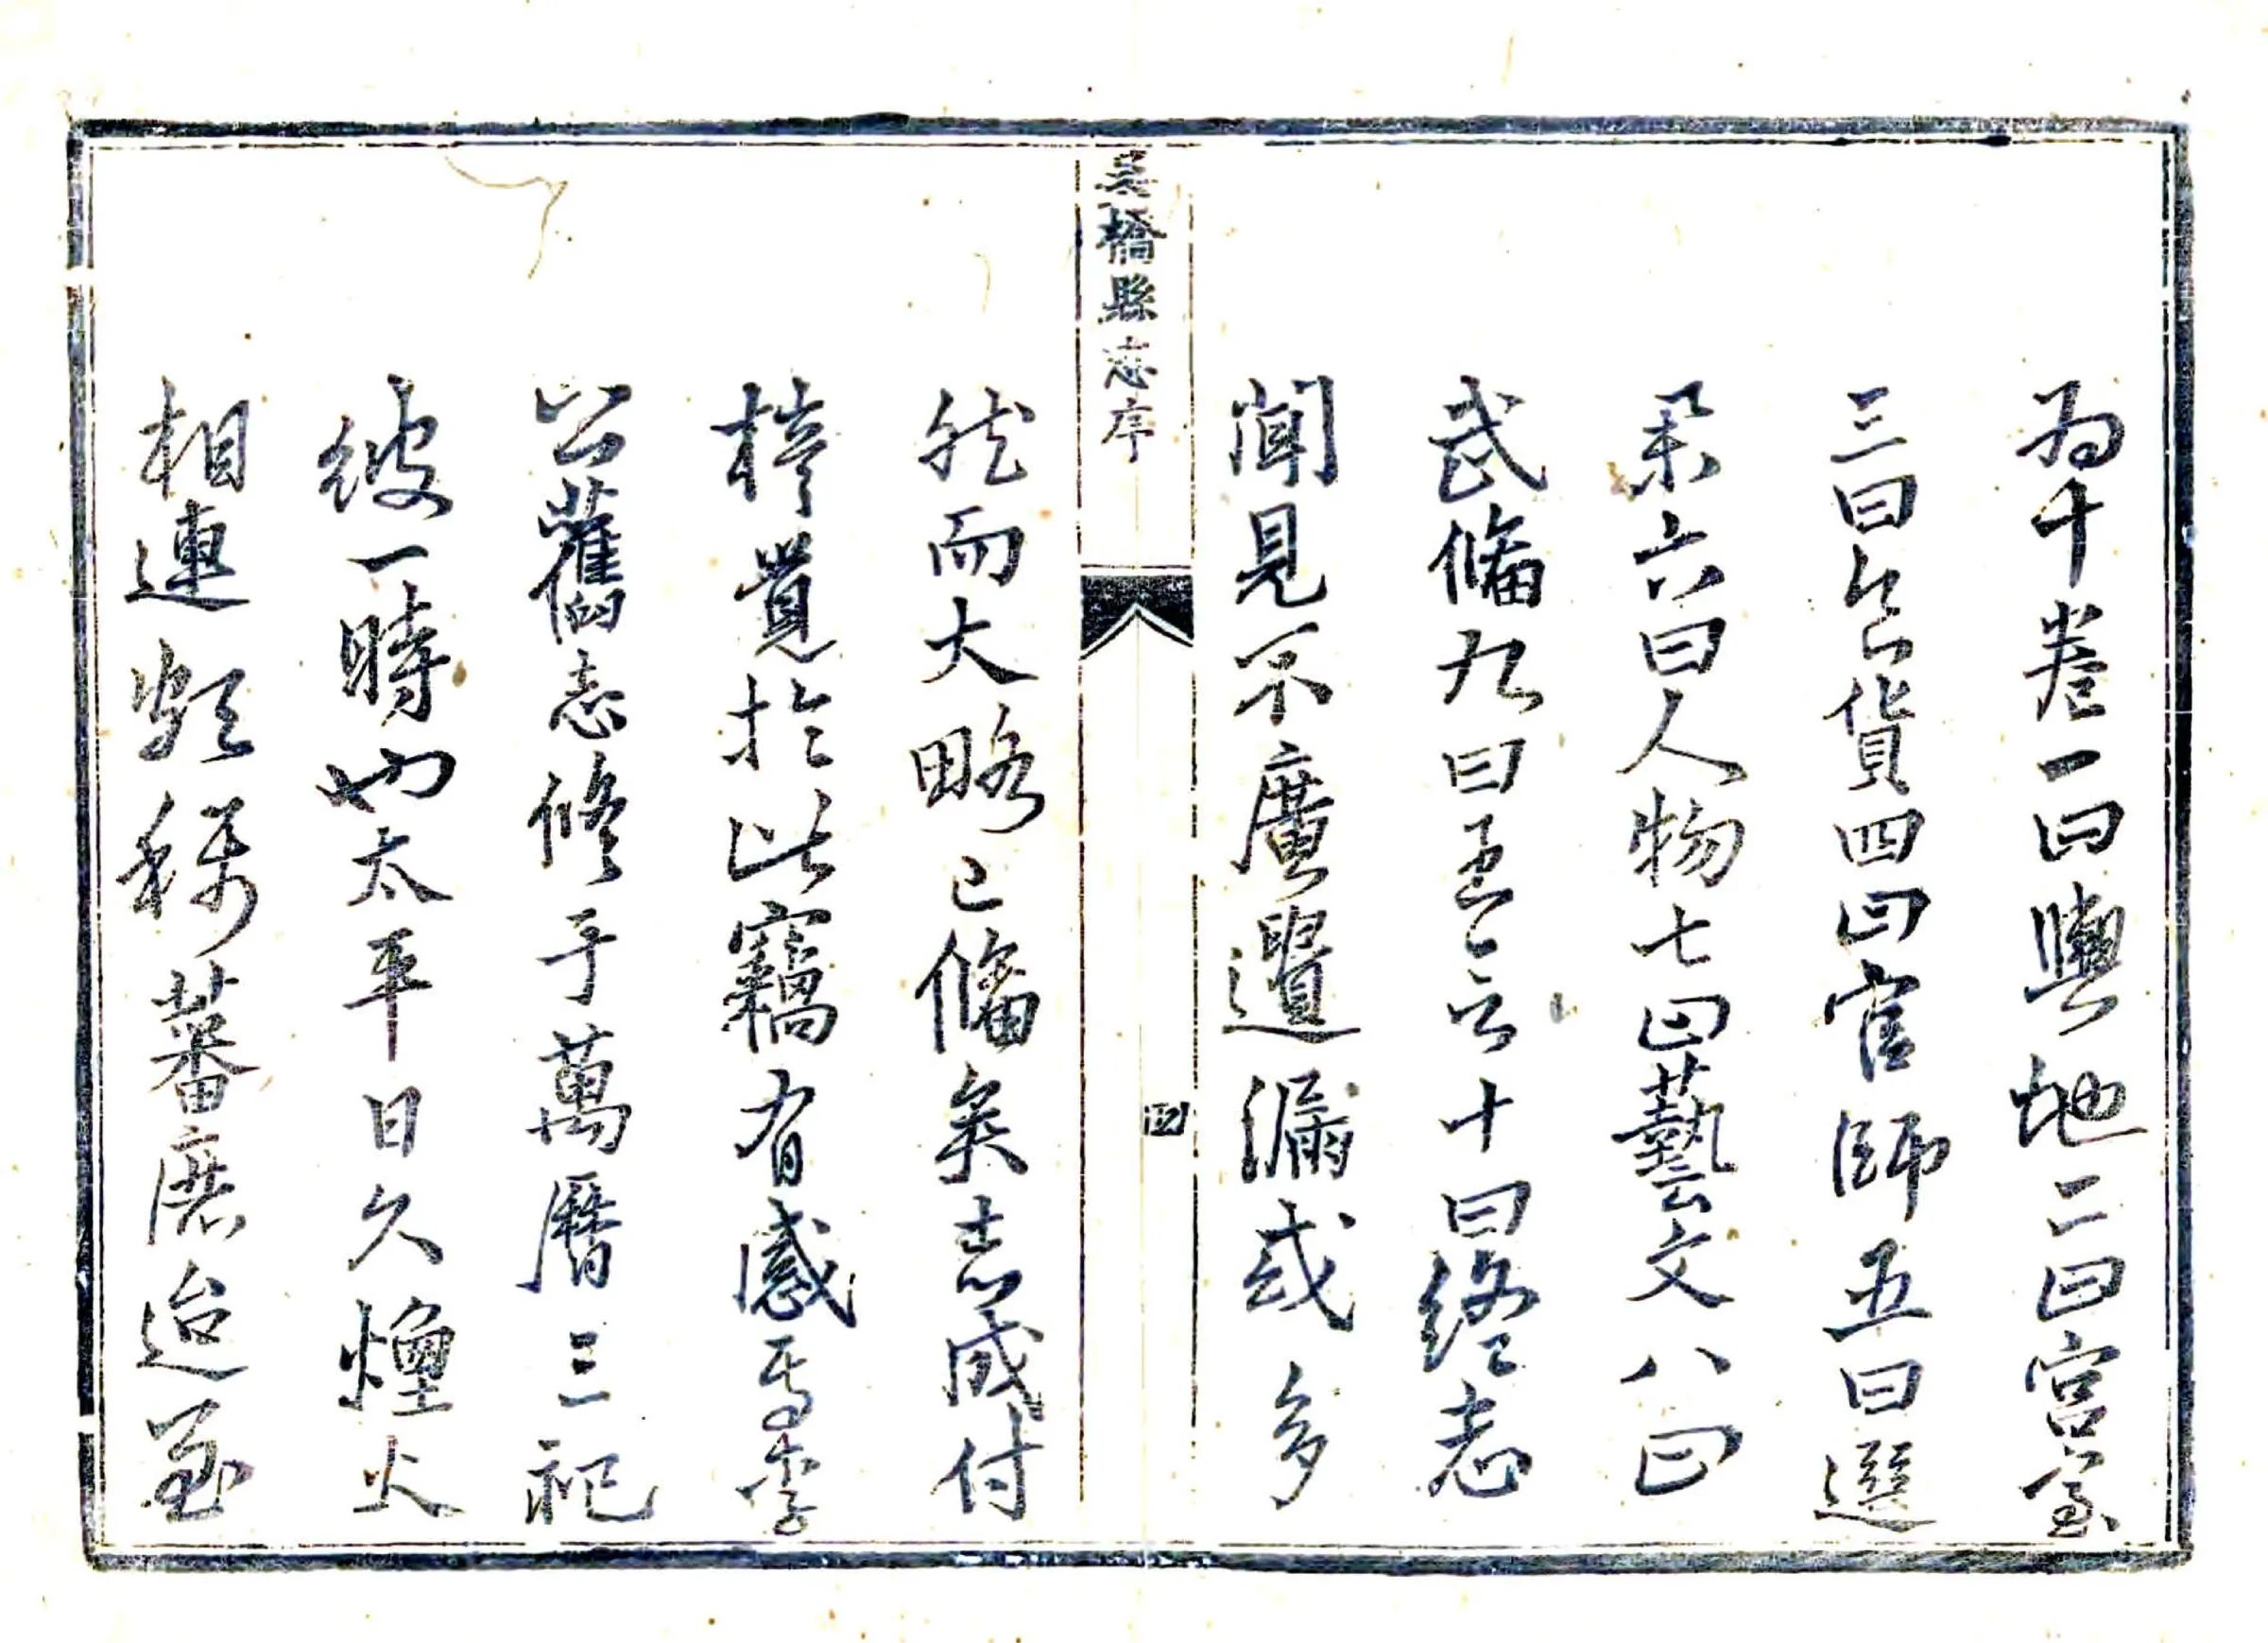 為十卷一曰輿地二曰宮室
三曰食貨四曰官師五曰選
舉六曰人物七曰藝文八曰
武備九曰言十曰終志
聞見不廣遺漏或多
吳橋縣志序
四
然而大略已備矣志成付
梓覺於此竊有感焉李
公舊志修于萬曆三祀
彼一時也太平日久煙火
相連頗稱蕃庶迨